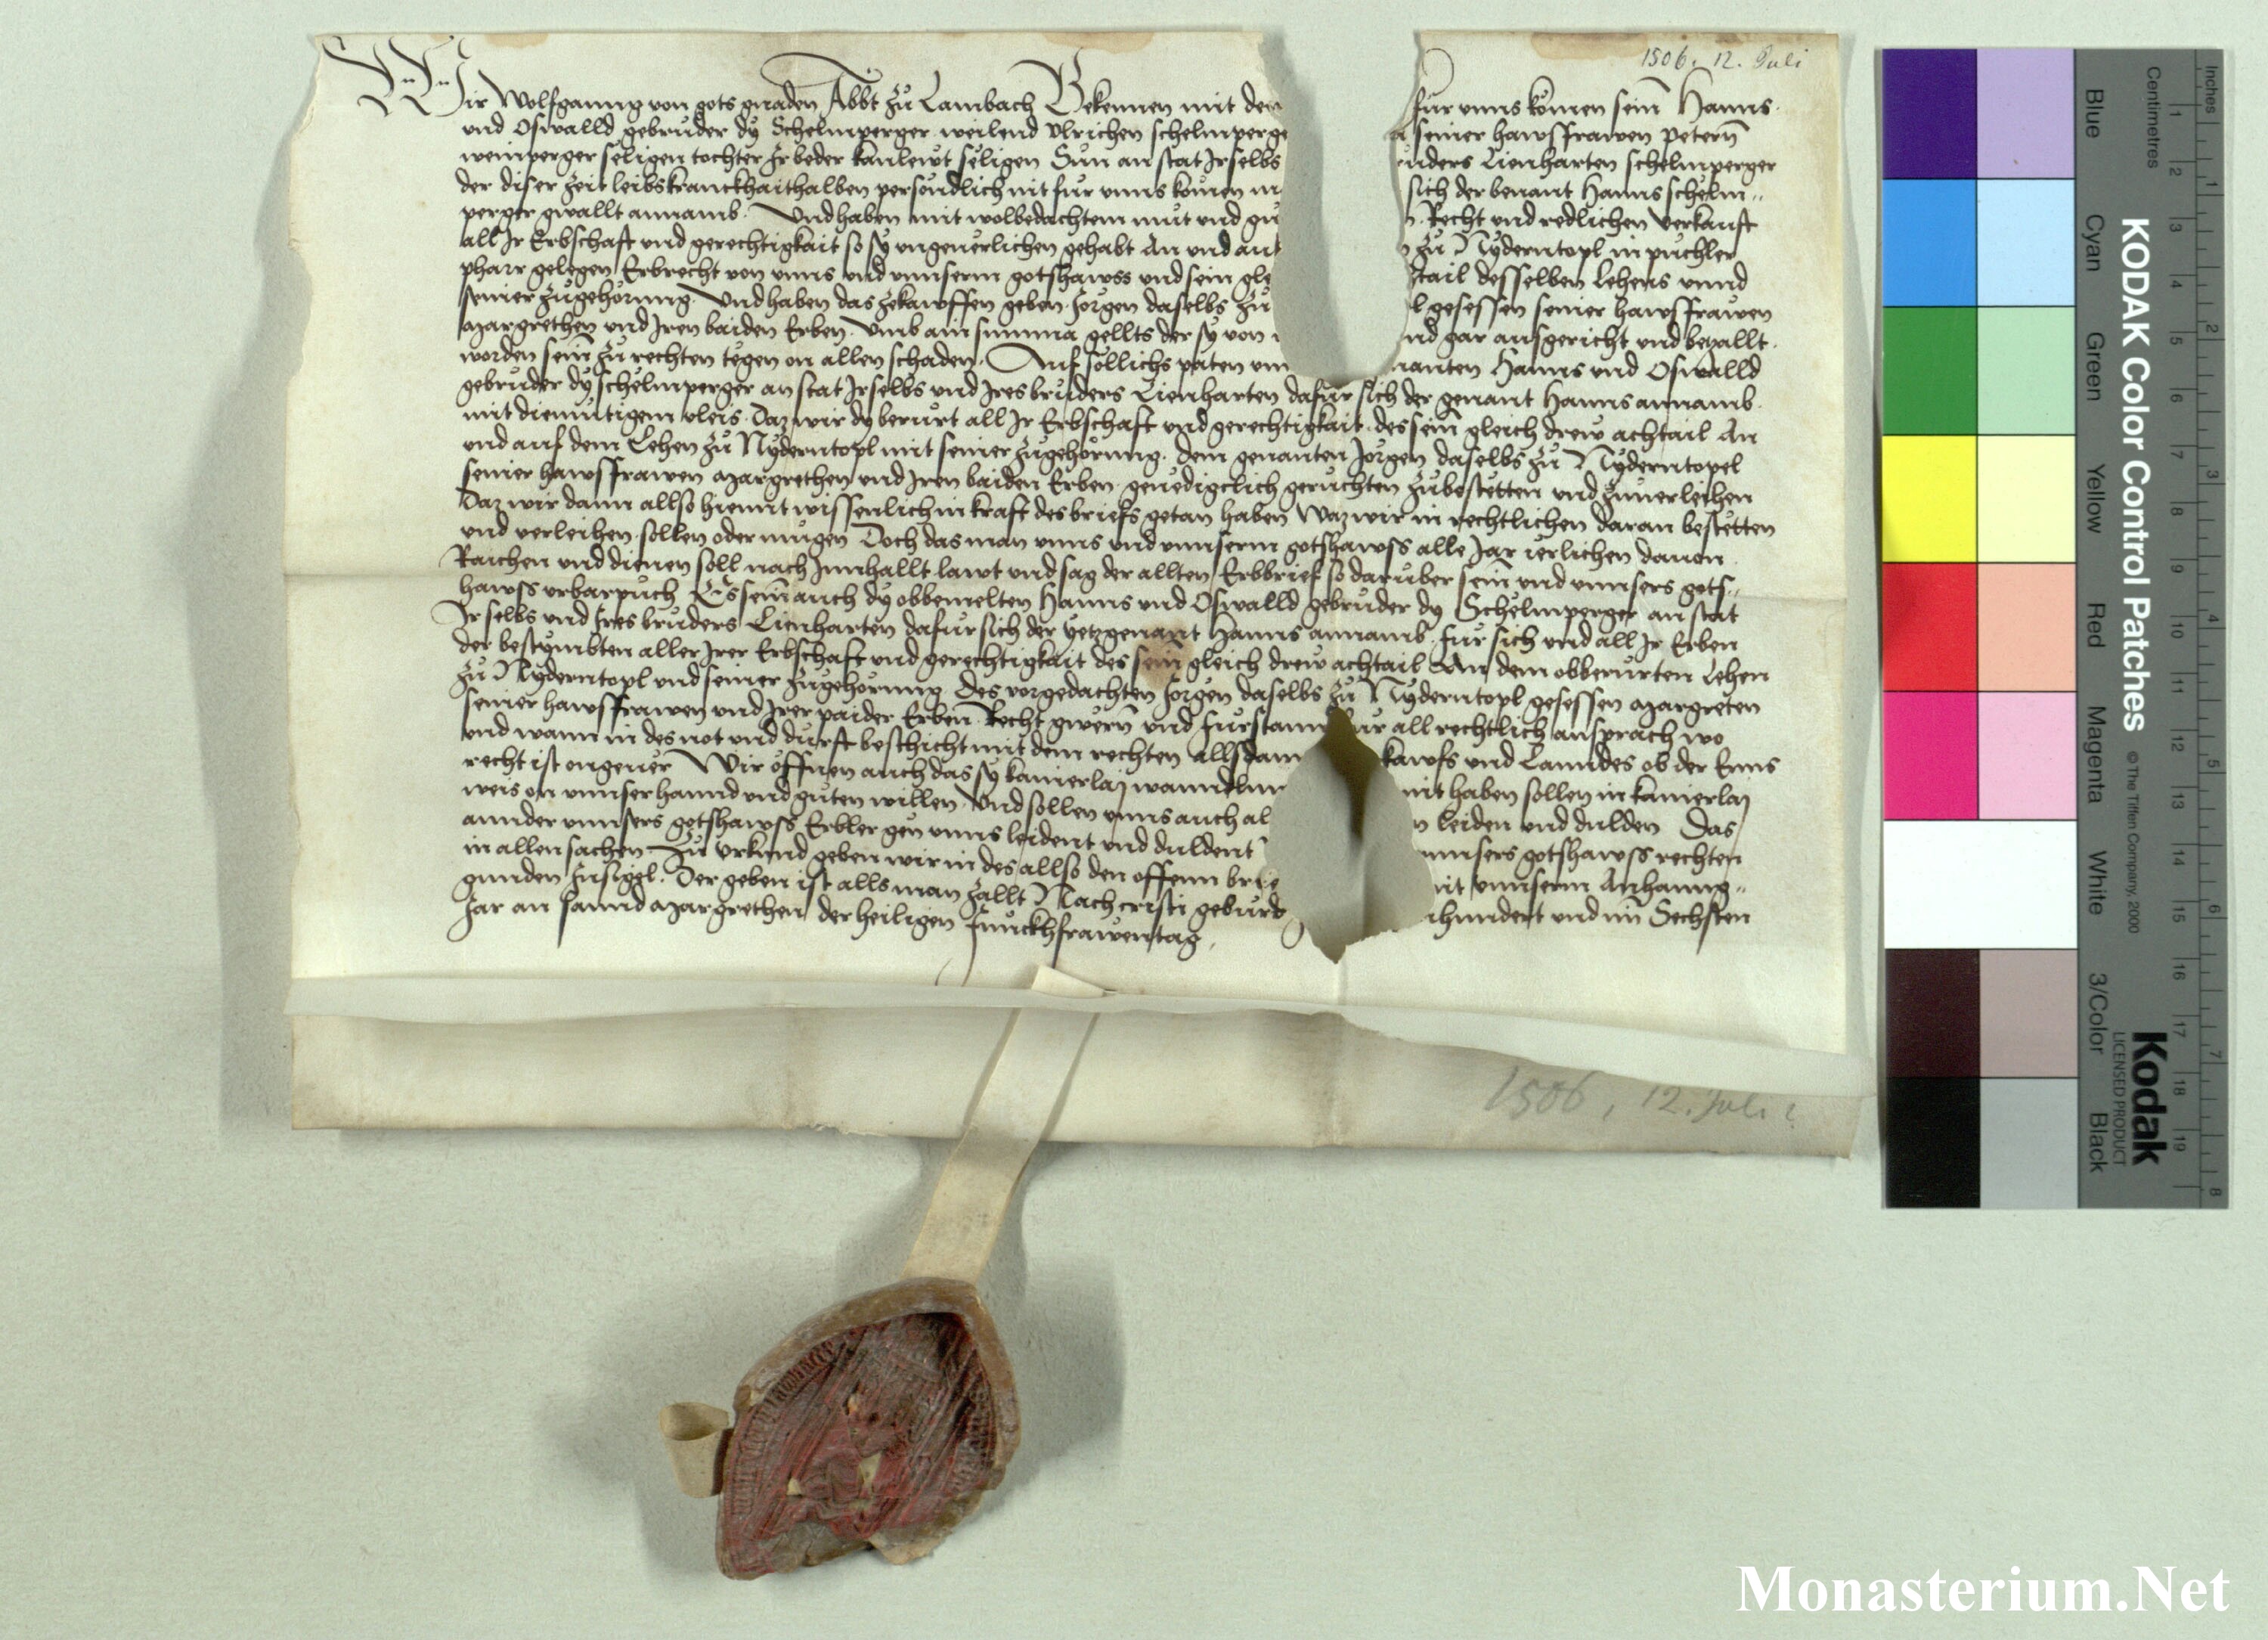 1506. 12. Juli
Wir Wolfganng von gots gnaden Abbt zů Lambach Bekennen mit dem fur unns komen sein Hanns
und Oswalld gebruder dy Schelmperger weilend Ulrichen schelmperge seiner hawsfrawen petern
weinperger seligen tochter Ir beder kanlewt seligen Sun an stat Irselbs ruders Lienharten schelmperger
der diser zeit leibs kranckhait halben personndlich nit fur unns komen sich der benant Hanns schelm„
perger gwallt annamb. Und haben mit wolbedachtem mut und gu Recht und redlichen verkauft
all Ir Erbschaft und gerechtigkait so sy ungeuerlichen gehabt An und auf zů Nyderntopl in puchler
pharr gelegen Erbrecht von unns und unnserm gotshawss und sein gle tail desselben Lehens unnd
seiner zůgehorung. Und haben das zekawffen geben Jorgen daselbs zů l gesessen seiner hawsfrawen
Margrethen und Iren baiden Erben. Umb ain summa gellts der sy von nd gar ausgericht und bezallt.
worden sein zu rechten tegen on allen schaden. Auf sollichs paten unn nanten Hanns und Oswalld
gebruder dy schelmperger an stat Irselbs und Ires bruders Lienharten dafur sich der genant Hanns annamb.
mit diemutigem vleis. Daz wir dy berurt all Ir Erbschaft und gerechtigkait des sein gleich drew achtail An
und auf dem Lehen zů Nyderntopl mit seiner zůgehorung. dem genanten Jorgen daselbs zů Nyderntopel
seiner hawsfrawen Margrethen und Iren baiden Erben genedigclich geruchten zůbestetten und zůuerleihen
Daz wir dann allso hiemit wissenlich in kraft des briefs getan haben Waz wir in rechtlichen daran bestetten
und verleihen sollen oder mugen Doch das man unns und unnserm gotshawss alle Jar ierlichen dauon
Raichen und dienen soll nach Innhallt lawt und sag der allten Erbbrief so daruber sein und unnsers gots„
hawss urbarpuch Es sein auch dy obbemelten Hanns und Oswalld gebruder dy Schelmperger an stat
Irselbs und Ires bruders Lienharten dafur sich der yetzgenant Hanns annamb. fur sich und all Ir Erben
der bestymbten aller Irer Erbschaft und gerechtigkait des sein gleich drew achtail An dem obberurten Lehen
zů Nyderntopl und seiner zůgehorung Des vorgedachten Jorgen daselbs zů Nyderntopl gesessen Margreten
seiner hawsfrawen und Irer paider Erben Recht gwern und furstannd fur all rechtlich ansprach wo
und wann in des not und durft beschicht mit dem rechten Allsdann kawfs und Lanndes ob der Enns
recht ist ongeuer Wir offnen auch das sy kainerlaj wanndlun nit haben sollen in kainerlaj
weis on unnser hannd und guten willen. Und sollen unns auch al n leiden und dulden Das
annder unnsers gotshawss Erbler gen unns leident und duldent unnsers gotshawss rechten
in allen sachen Zů Urkund geben wir in des allso den offenn brie mit unnserm Anhanng„
gunden Insigl. Der geben ist alls man zallt Nach cristi geburd hundert und im Sechsten
Jar an sannd Margrethen der heiligen Junckhfrawen tag.
1506, 12. Juli
Inches
Centimetres
KODAK Color Control Patches
© The Tiffen Company, 2000
Kodak
LICENSED PRODUCT
Blue
Cyan
Green
Yellow
Red
Magenta
White
3/Color
Black
1
2
3
4
5
6
7
8
9
10
11
12
13
14
15
16
17
18
19
1
2
3
4
5
6
7
8
Monasterium.Net